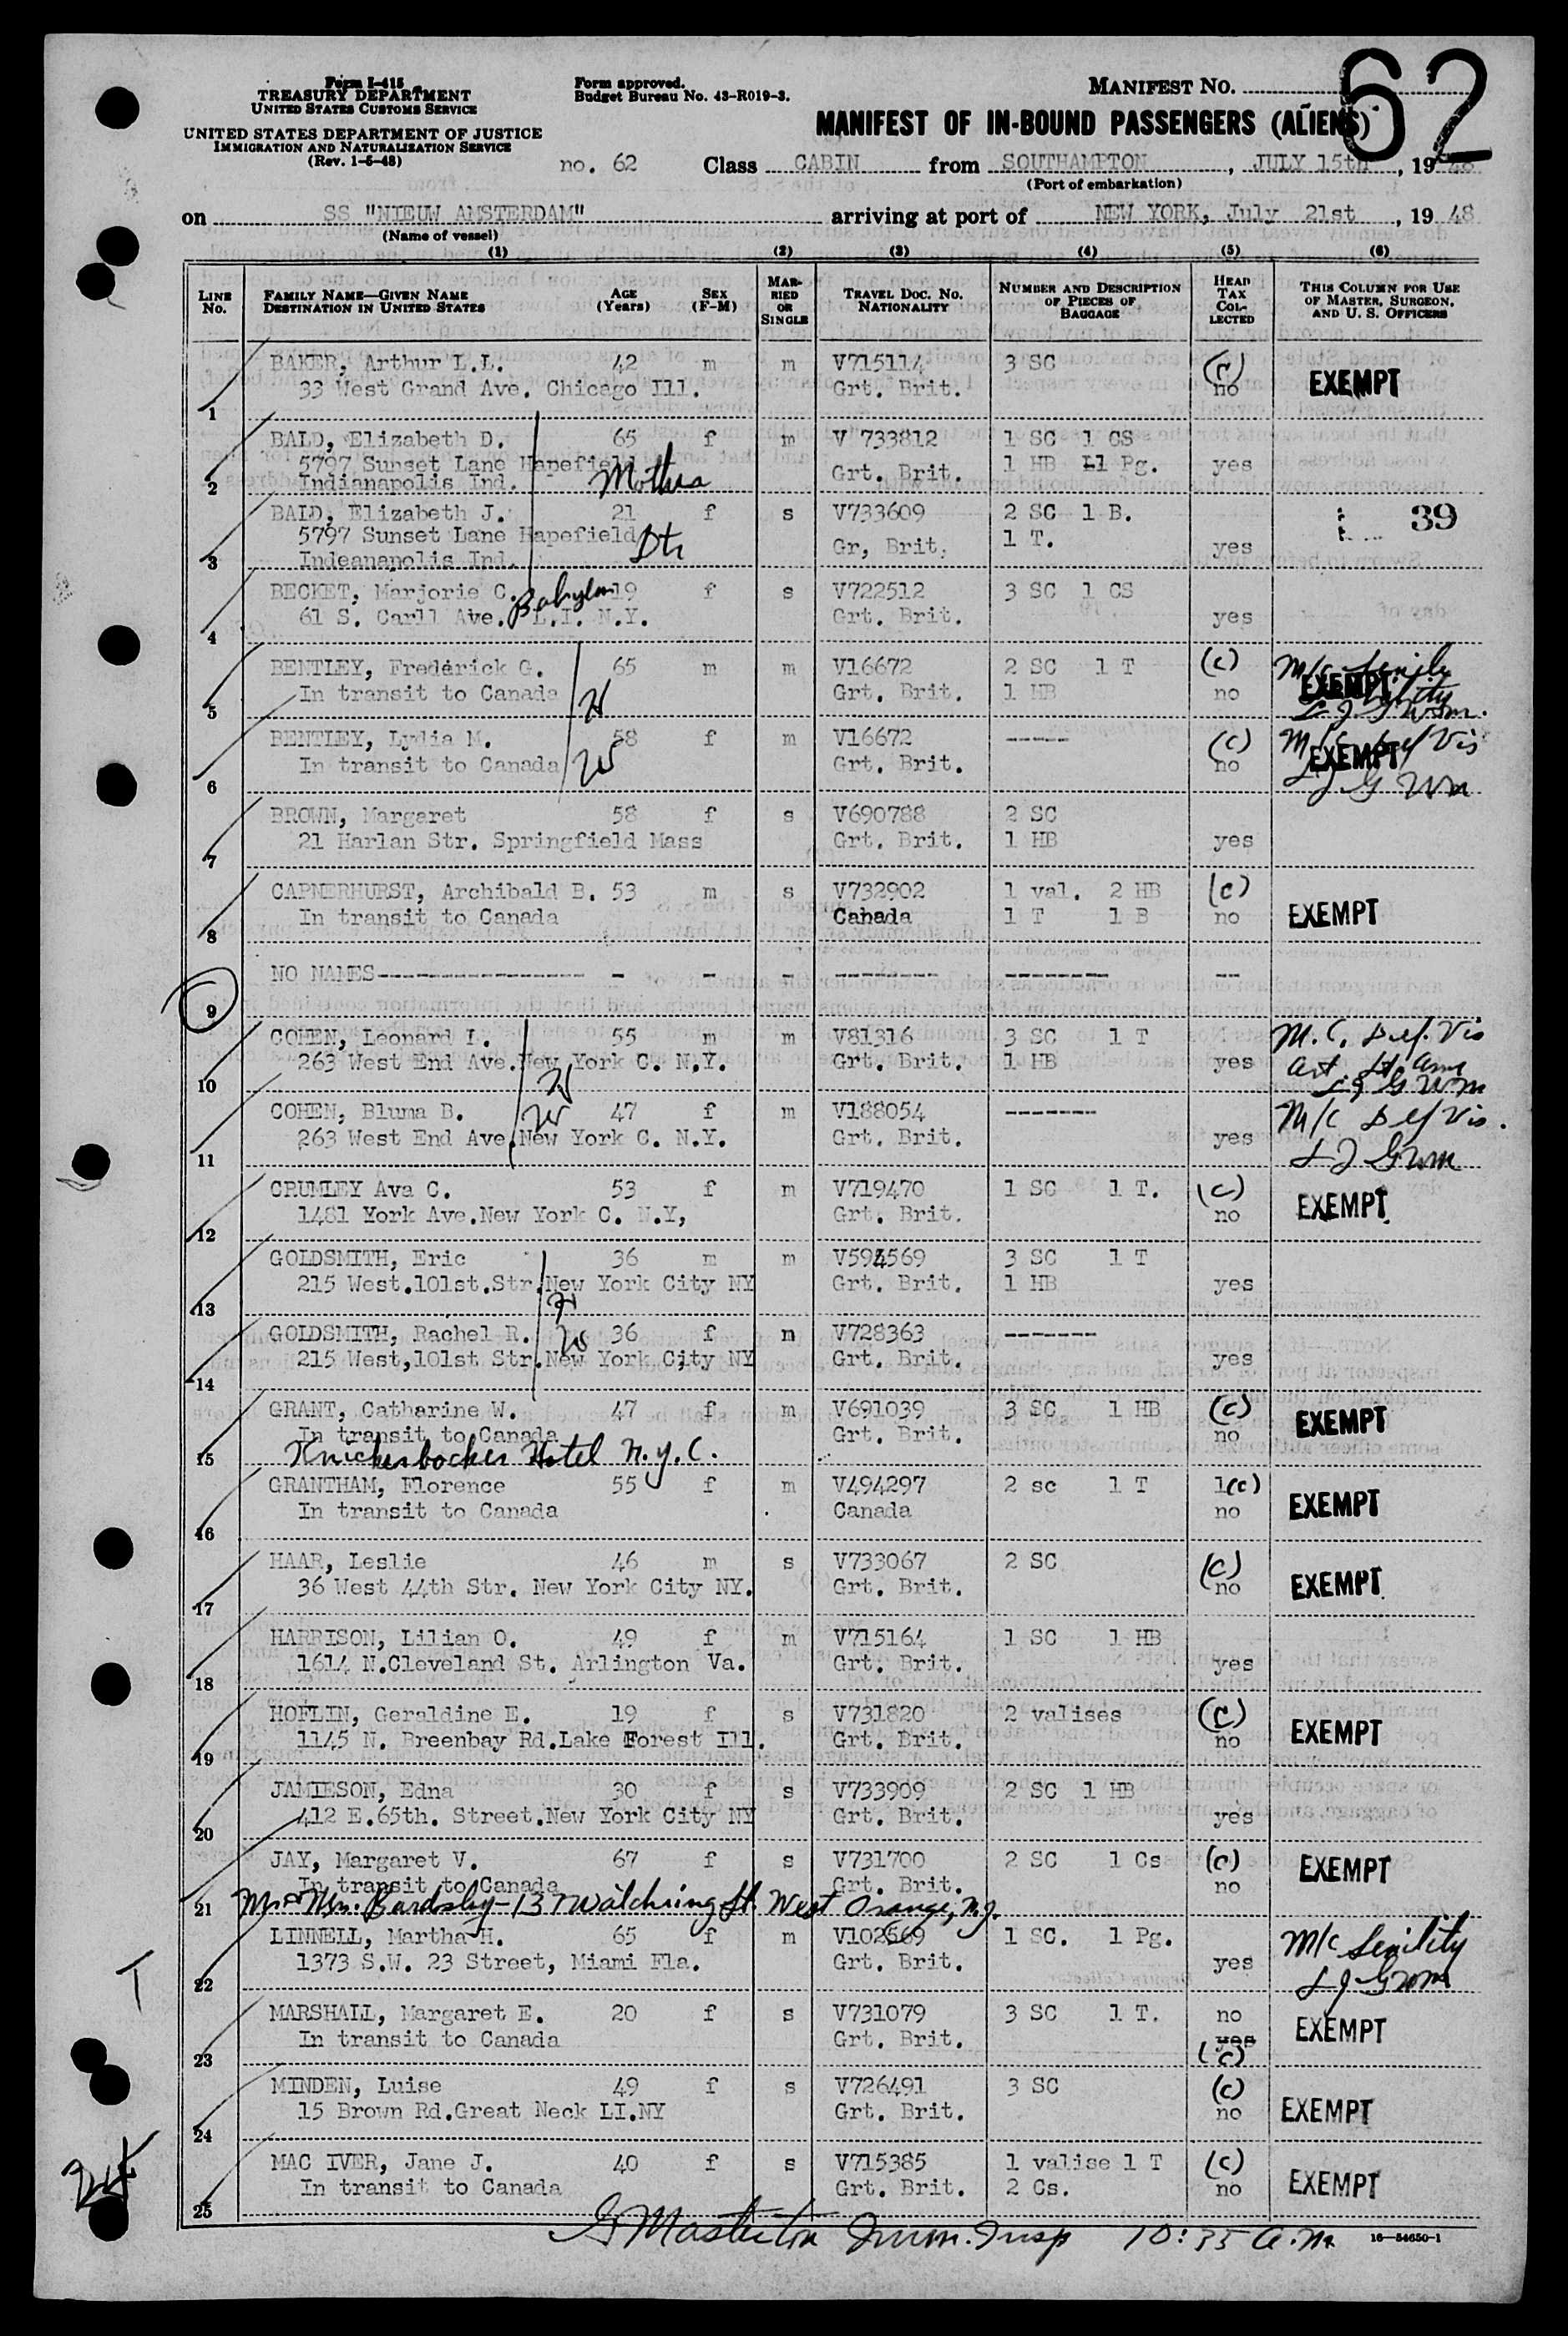 Form I-415
TREASURY DEPARTMENT
UNITED STATES CUSTOMS SERVICE
UNITED STATES DEPARTMENT OF JUSTICE
IMMIGRATION AND NATURALIZATION SERVICE
(Rev. 1-6-48)
Form approved.
Budget Bureau No. 43-R019-3.
MANIFEST NO. 62
MANIFEST OF IN-BOUND PASSENGERS (ALIENS)
no. 62 Class CABIN from SOUTHAMPTON, JULY 15th, 1948
(Port of embarkation)
on SS "NIEUW AMSTERDAM" arriving at port of NEW YORK, July 21st, 1948
(Name of vessel)
(1) (2) (3) (4) (5) (6)
LINE NO. FAMILY NAME—GIVEN NAME DESTINATION IN UNITED STATES AGE (Years) SEX (F-M) MARRIED OR SINGLE TRAVEL DOC. NO. NATIONALITY NUMBER AND DESCRIPTION OF PIECES OF BAGGAGE HEAD TAX COLLECTED THIS COLUMN FOR USE OF MASTER, SURGEON, AND U. S. OFFICERS
BAKER, Arthur L.L. 42 m m V715114 3 SC (c)
1 33 West Grand Ave. Chicago Ill. Grt. Brit. no EXEMPT
BALD, Elizabeth D. 65 f m V 733812 1 SC 1 CS
5797 Sunset Lane Hapefield Mother Grt. Brit. 1 HB 1 Pg. yes
2 Indianapolis Ind.
BALD, Elizabeth J. 21 f s V733609 2 SC 1 B. 39
5797 Sunset Lane Hapefield Dtr Gr, Brit. 1 T. yes
3 Indeanapolis Ind.
BECKET, Marjorie C. 19 f s V722512 3 SC 1 CS
4 61 S. Carll Ave. Babylon L.I. N.Y. Grt. Brit. yes
BENTLEY, Frederick G. 65 m m V16672 2 SC 1 T (c) M/c Senile
5 In transit to Canada H Grt. Brit. 1 HB no EXEMPT
BENTLEY, Lydia M. 58 f m V16672 ----- (c) M/c Def Vis
6 In transit to Canada W Grt. Brit. no EXEMPT
BROWN, Margaret 58 f s V690788 2 SC
7 21 Harlan Str. Springfield Mass Grt. Brit. 1 HB yes
CAPNERHURST, Archibald B. 53 m s V732902 1 val. 2 HB (c)
8 In transit to Canada Canada 1 T 1 B no EXEMPT
9 NO NAMES---------------- - - - -------- -------- --
COHEN, Leonard I. 55 m m V81316 3 SC 1 T M.C. Def. Vis
10 263 West End Ave. New York C. N.Y. H Grt. Brit. 1 HB yes
COHEN, Bluma B. W 47 f m V188054 ------- M/c Def Vis.
11 263 West End Ave. New York C. N.Y. Grt. Brit. yes
CRUMLEY Ava C. 53 f m V719470 1 SC 1 T. (c)
12 1481 York Ave.New York C. N.Y, Grt. Brit. no EXEMPT
GOLDSMITH, Eric 36 m m V594569 3 SC 1 T
13 215 West.101st.Str.New York City NY H Grt. Brit. 1 HB yes
GOLDSMITH, Rachel R. W 36 f m V728363 -------
14 215 West,101st Str.New York City NY Grt. Brit. yes
GRANT, Catharine W. 47 f m V691039 3 SC 1 HB (c)
In transit to Canada Grt. Brit. no EXEMPT
15 Knickerbocker Hotel N.Y.C.
GRANTHAM, Florence 55 f m V494297 2 sc 1 T 1(c)
16 In transit to Canada Canada no EXEMPT
HAAR, Leslie 46 m s V733067 2 SC (c)
17 36 West 44th Str. New York City NY. Grt. Brit. no EXEMPT
HARRISON, Lilian O. 49 f m V715164 1 SC 1 HB
18 1614 N.Cleveland St. Arlington Va. Grt. Brit. yes
HOFLIN, Geraldine E. 19 f s V731820 2 valises (c)
19 1145 N. Breenbay Rd.Lake Forest Ill. Grt. Brit. no EXEMPT
JAMIESON, Edna 30 f s V733909 2 SC 1 HB
20 412 E.65th. Street.New York City NY Grt. Brit. yes
JAY, Margaret V. 67 f s V731700 2 SC 1 Cs (c)
In transit to Canada Grt. Brit. no EXEMPT
21 Mr & Mrs. Bardsley - 137 Watchung St. West Orange, N.J.
LINNELL, Martha H. 65 f m V102669 1 SC. 1 Pg. M/c Senility
22 1373 S.W. 23 Street, Miami Fla. Grt. Brit. yes
MARSHALL, Margaret E. 20 f s V731079 3 SC 1 T. no
23 In transit to Canada Grt. Brit. yes (c) EXEMPT
MINDEN, Luise 49 f s V726491 3 SC (c)
24 15 Brown Rd.Great Neck LI.NY Grt. Brit. no EXEMPT
MAC IVER, Jane J. 40 f s V715385 1 valise 1 T (c)
25 In transit to Canada Grt. Brit. 2 Cs. no EXEMPT
T
24
G Masterton Imm. Insp 10:35 a.m.
16—54650-1